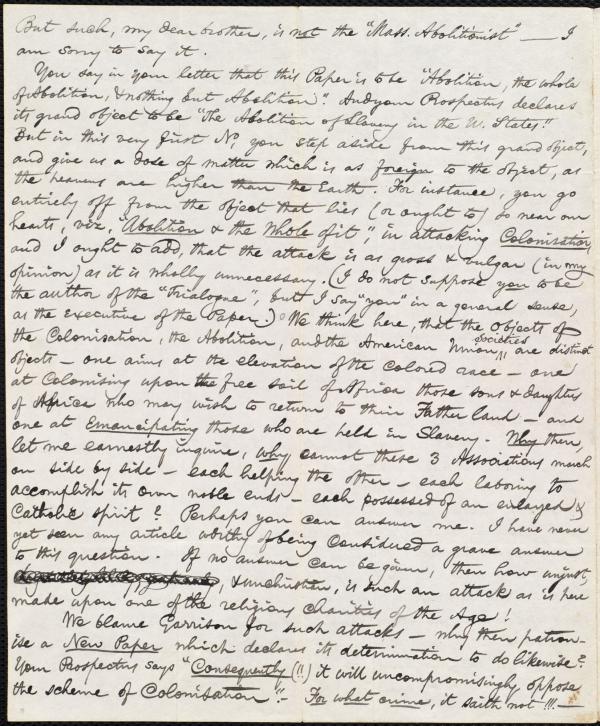 But such, my dear brother, is not the "Mass. Abolitionist" — I
am sorry to say it.
You say in your letter that this Paper is to be "Abolition, the whole
of Abolition, & nothing but Abolition". And your Prospectus declares
its grand object to be "The Abolition of Slavery in the U. States."
But in this very first No, you step aside from this grand object,
and give us a dose of matter which is as foreign to the object, as
the heavens are higher than the Earth. For instance, you go
entirely off from the object that lies (or ought to) so near our
hearts, viz, "Abolition & the Whole of it", in attacking Colonisation,
and I ought to add, that the attack is as gross & vulgar (in my
opinion) as it is wholly unnecessary. (I do not suppose you to be
the author of the "Trialogue", but I say "you" in a general sense,
as the Executive of the Paper.) We think here, that the objects of
the Colonisation, the Abolition, and the American Union societies are distinct
objects — one aims at the elevation of the colored race — one
at Colonising upon the free soil of Africa those sons & daughters
of Africa who may wish to return to their Father land — and
one at Emancipating those who are held in Slavery. Why then,
let me earnestly inquire, why cannot these 3 Associations march
on side by side — each helping the other — each laboring to
accomplish its own noble ends — each possessed of an enlarged &
Catholic spirit? Perhaps you can answer me. I have never
yet seen any article worthy of being considered a grave answer
to this question. If no answer can be given, then how unjust,
& unchristian, is such an attack as is here
made upon one of the religious charities of the Age!
We blame Garrison for such attacks — why then patron-
ise a New Paper which declares its determination to do likewise?
Your Prospectus says "Consequently (!!) it will uncompromisingly oppose
the scheme of Colonisation"! — For what crime, it saith not!!! —